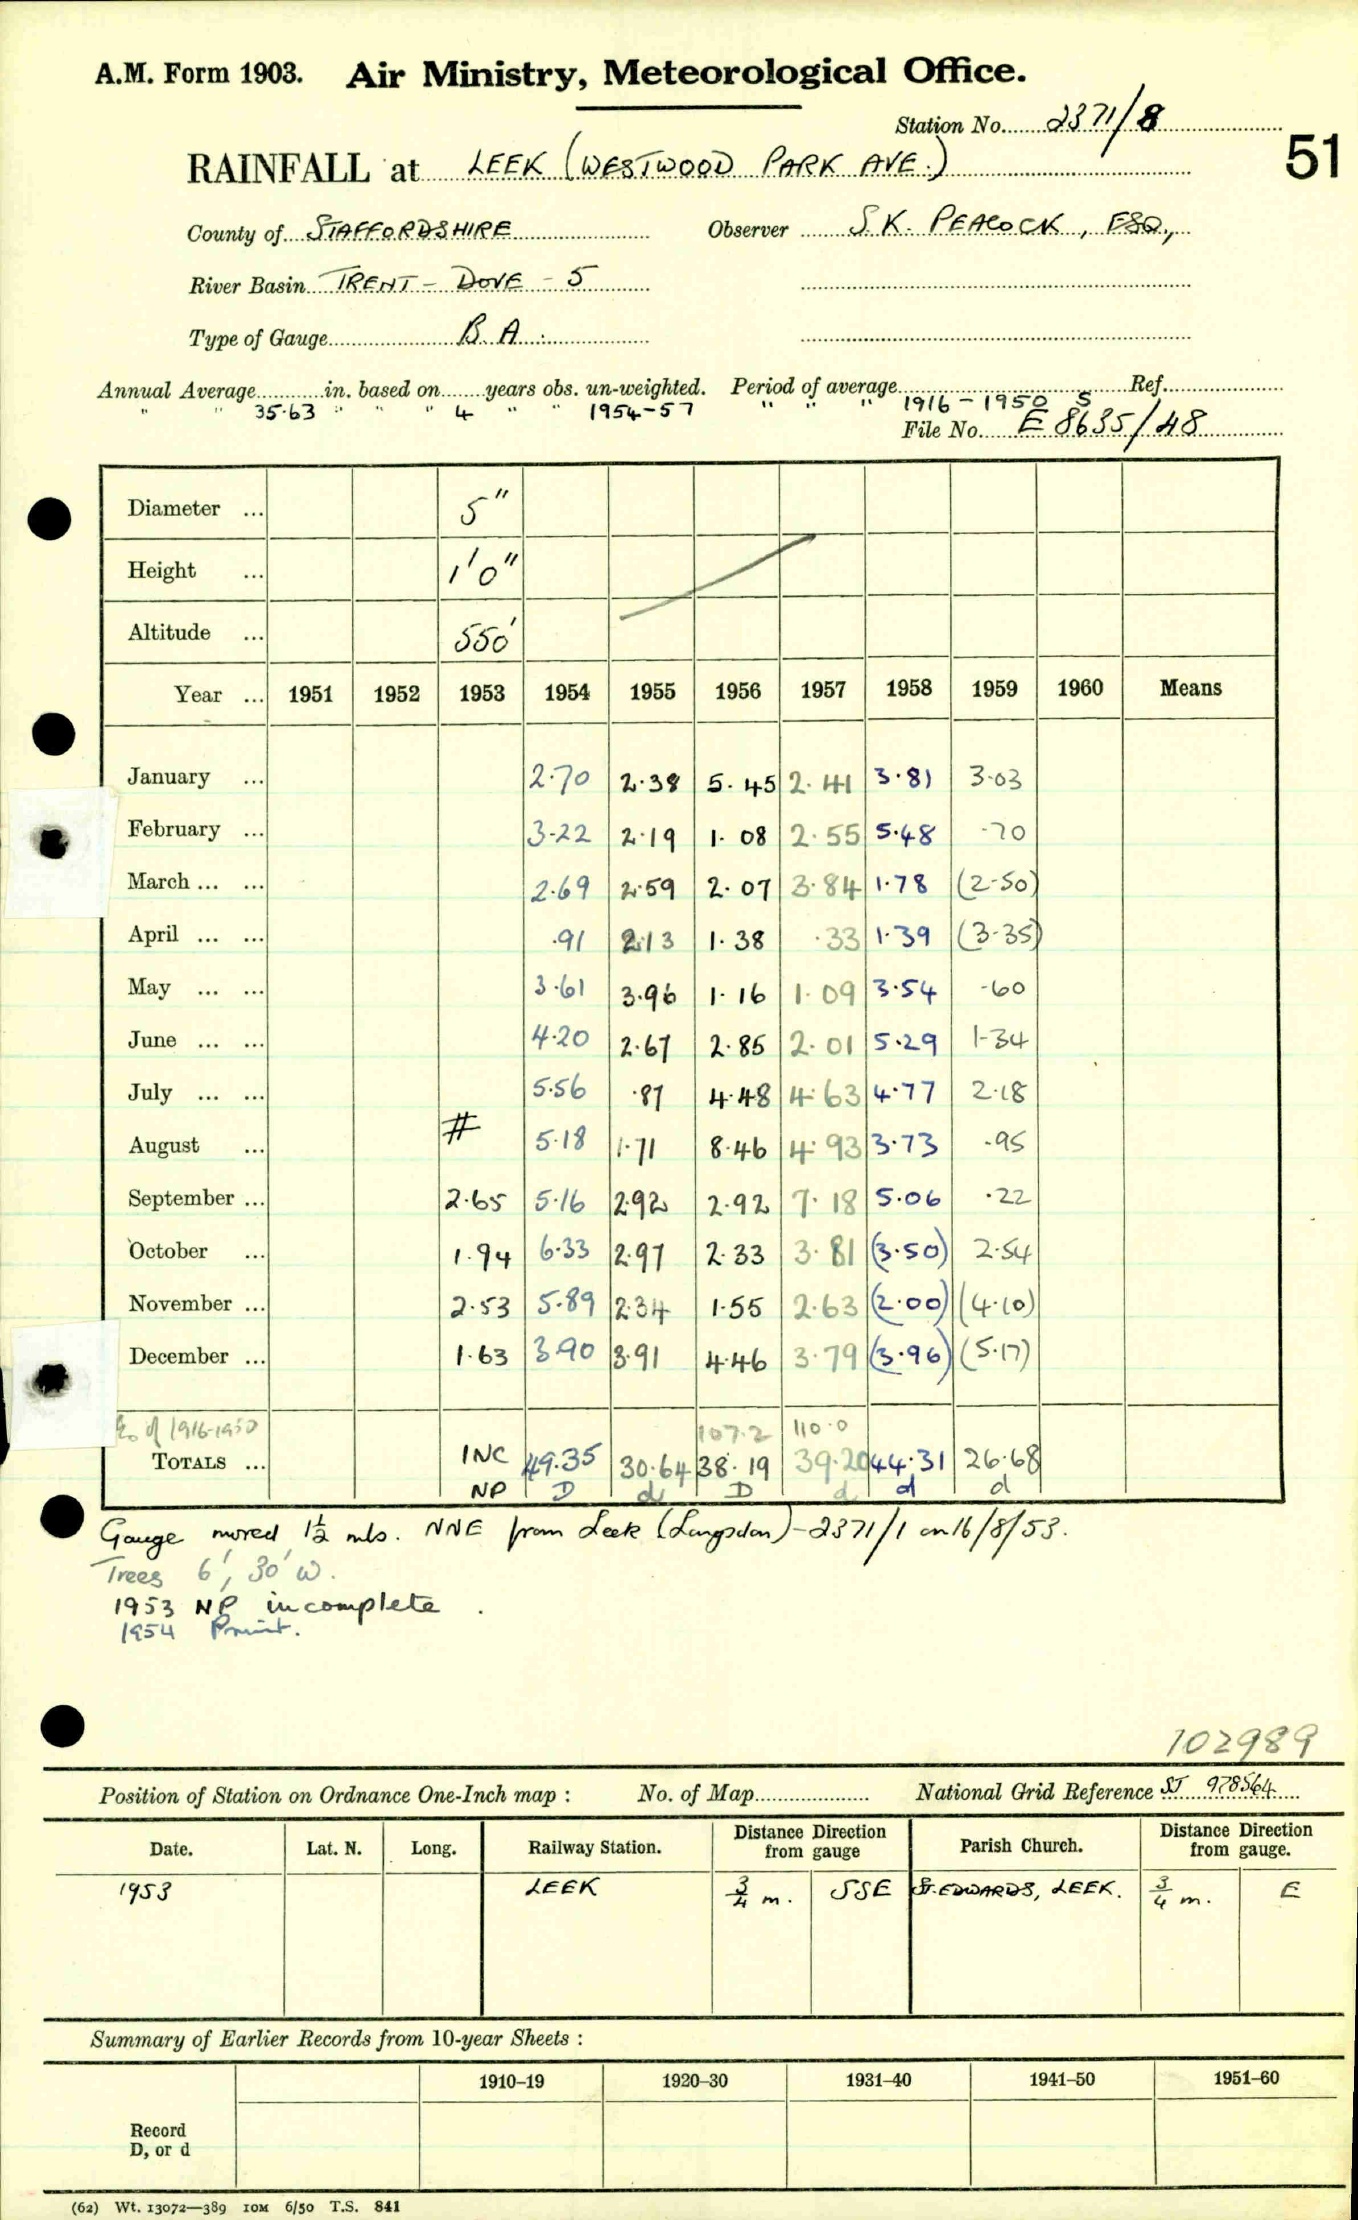 A.M. Form 1903. Air Ministry, Meteorological Office.
Station No. 2371/8
51
RAINFALL at LEEK (WESTWOOD PARK AVE.)
County of STAFFORDSHIRE Observer S.K. PEACOCK, ESQ.,
River Basin TRENT - DOVE - 5
Type of Gauge B.A.
Annual Average in. based on years obs. un-weighted. Period of average Ref.
" " 35.63 " " " 4 " " 1954-57 " " " 1916-1950 S
File No. E 8635/48
Diameter ... 5"
Height ... 1'0"
Altitude ... 550'
Year ... 1951 1952 1953 1954 1955 1956 1957 1958 1959 1960 Means
January ... 2.70 2.38 5.45 2.41 3.81 3.03
February ... 3.22 2.19 1.08 2.55 5.48 .70
March ... ... 2.69 2.59 2.07 3.84 1.78 (2.50)
April ... ... .91 2.13 1.38 .33 1.39 (3.35)
May ... ... 3.61 3.96 1.16 1.09 3.54 .60
June ... ... 4.20 2.67 2.85 2.01 5.29 1.34
July ... ... 5.56 .87 4.48 4.63 4.77 2.18
August ... # 5.18 1.71 8.46 4.93 3.73 .95
September ... 2.65 5.16 2.92 2.92 7.18 5.06 .22
October ... 1.94 6.33 2.97 2.33 3.81 (3.50) 2.54
November ... 2.53 5.89 2.34 1.55 2.63 (2.00) (4.10)
December ... 1.63 3.90 3.91 4.46 3.79 (3.96) (5.17)
% of 1916-1950 107.2 110.0
TOTALS ... INC 49.35 30.64 38.19 39.20 44.31 26.68
NP D d D d d d
Gauge moved 1½ mls. NNE from Leek (Langsdon) - 2371/1 on 16/8/53.
Trees 6', 30' W.
1953 NP incomplete.
1954 Print.
102989
Position of Station on Ordnance One-Inch map : No. of Map National Grid Reference SJ 978564
Date. Lat. N. Long. Railway Station. Distance Direction from gauge Parish Church. Distance Direction from gauge.
1953 LEEK ¾ m. SSE St. EDWARDS, LEEK. ¾ m. E
Summary of Earlier Records from 10-year Sheets :
1910–19 1920–30 1931–40 1941–50 1951–60
Record
D, or d
(62) Wt. 13072—389 10M 6/50 T.S. 841